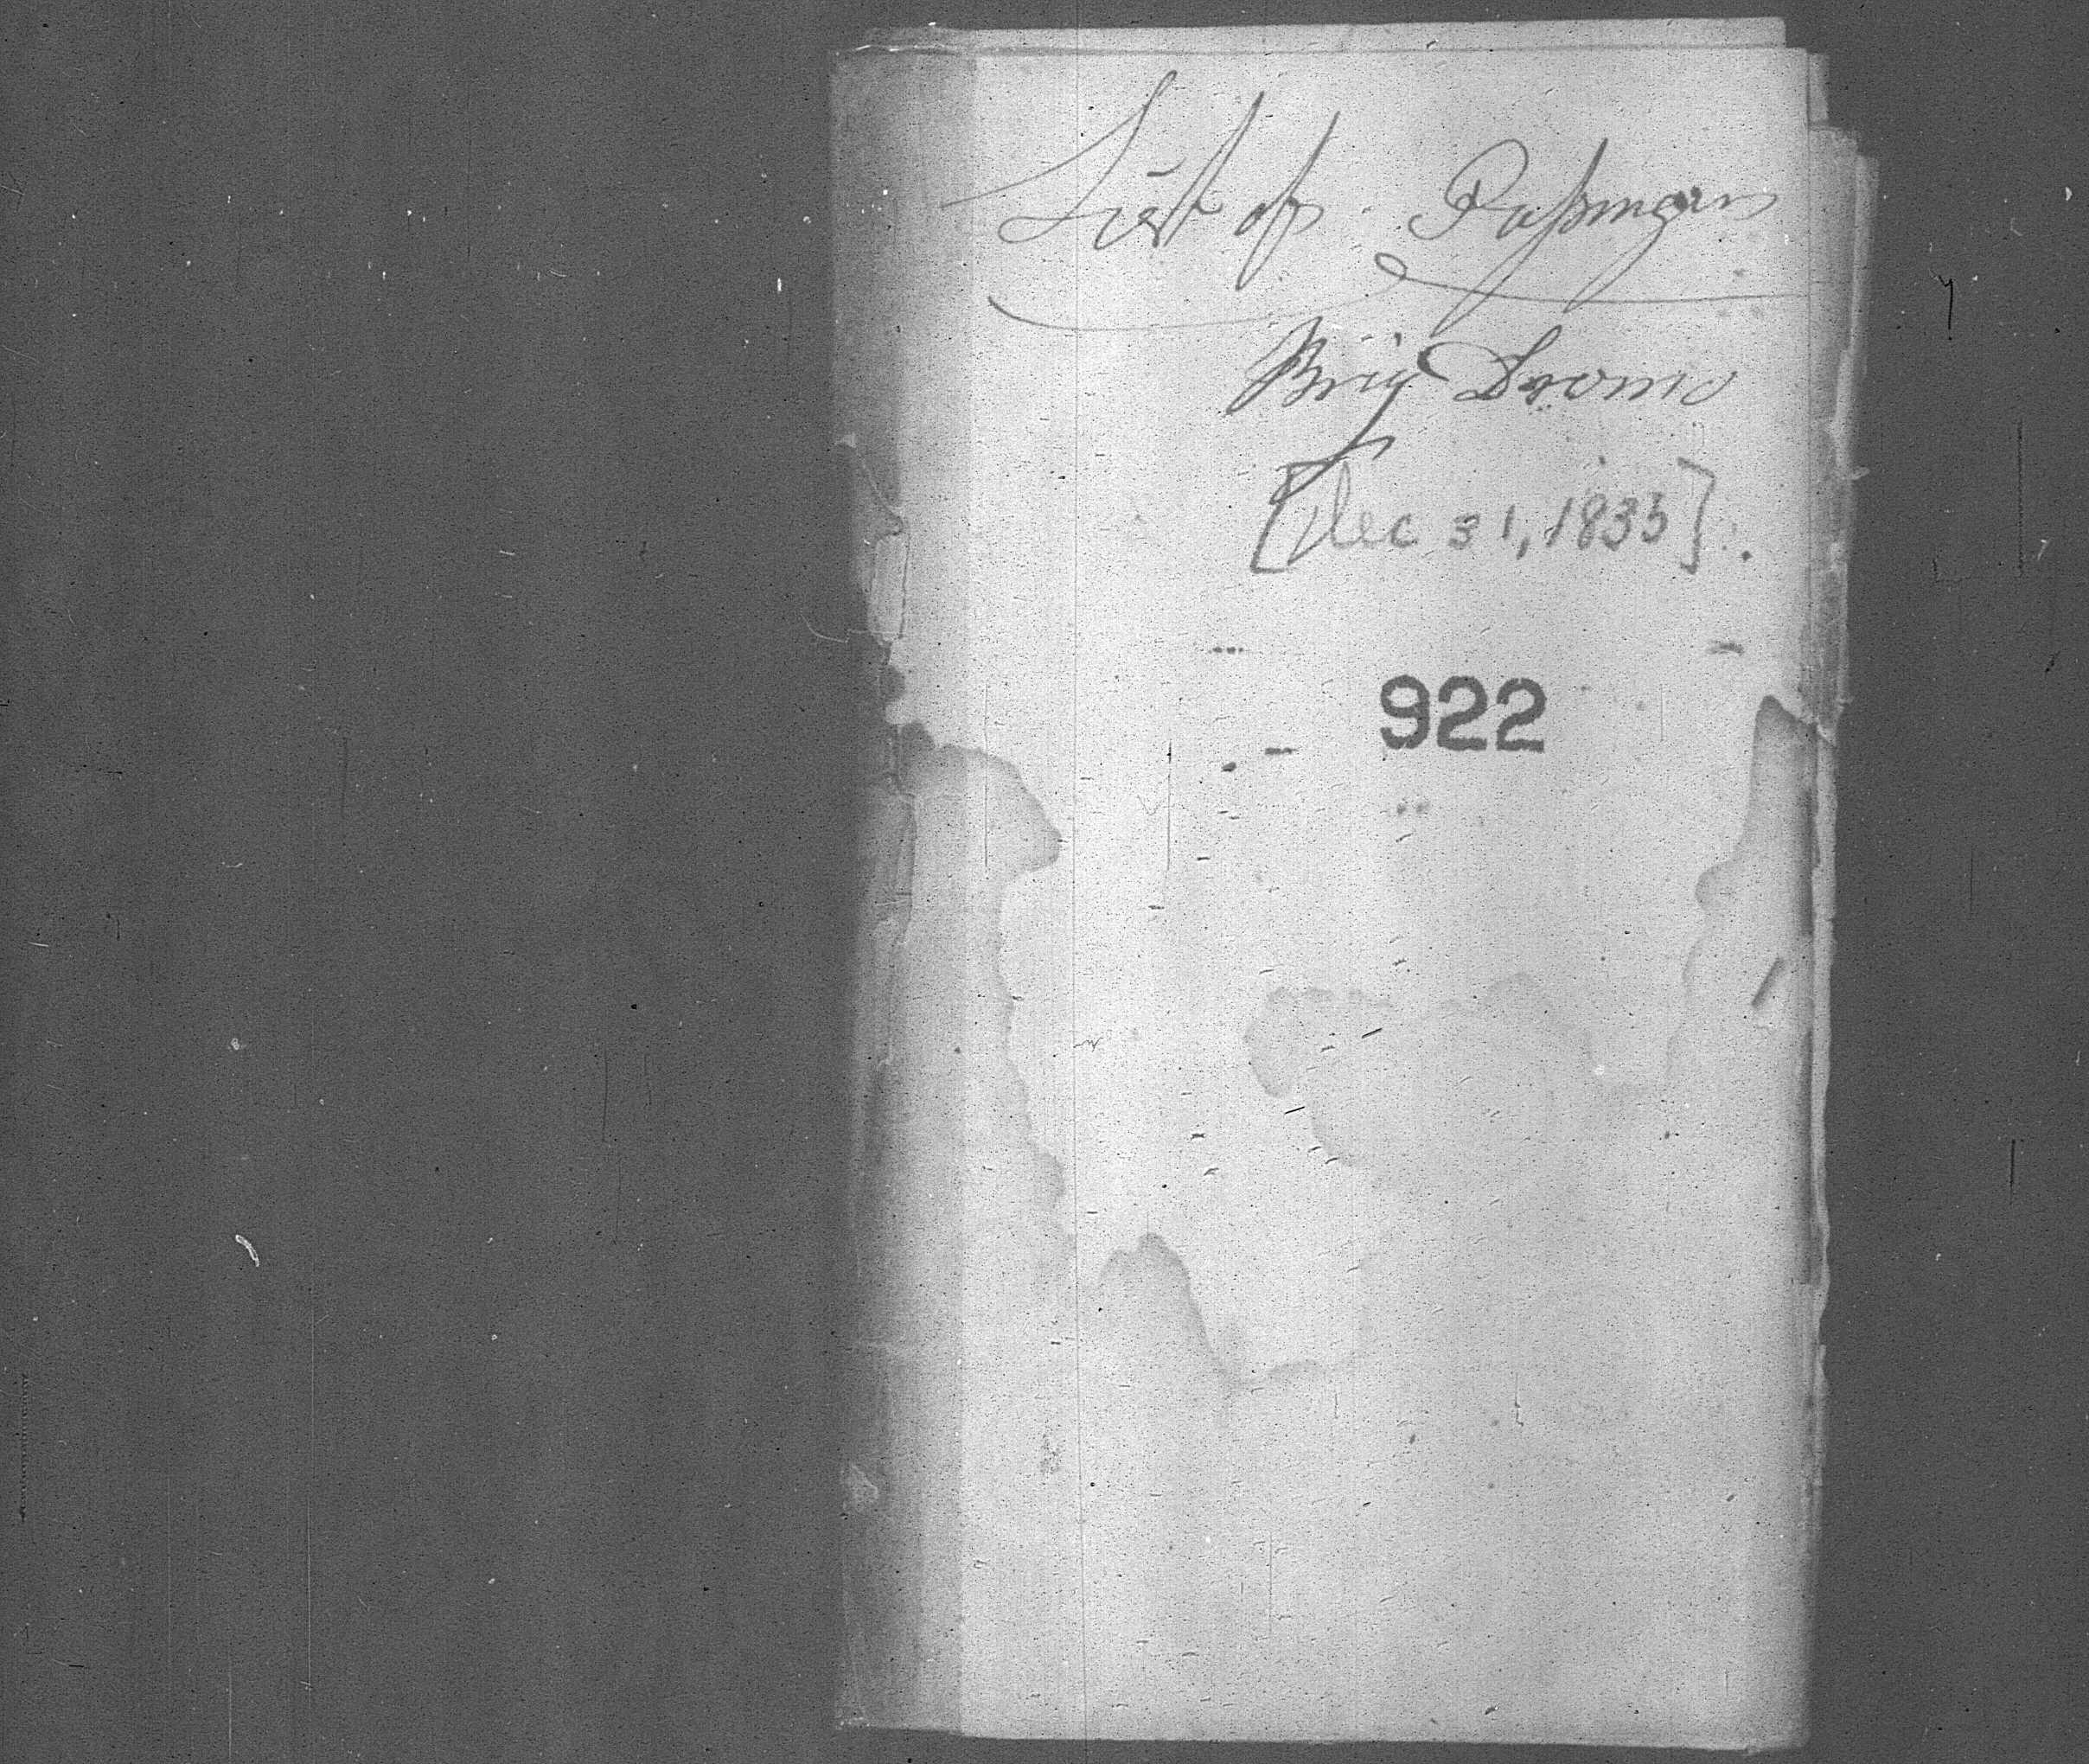 List of Passengers
Brig Dromo
[Dec 31, 1835].
922